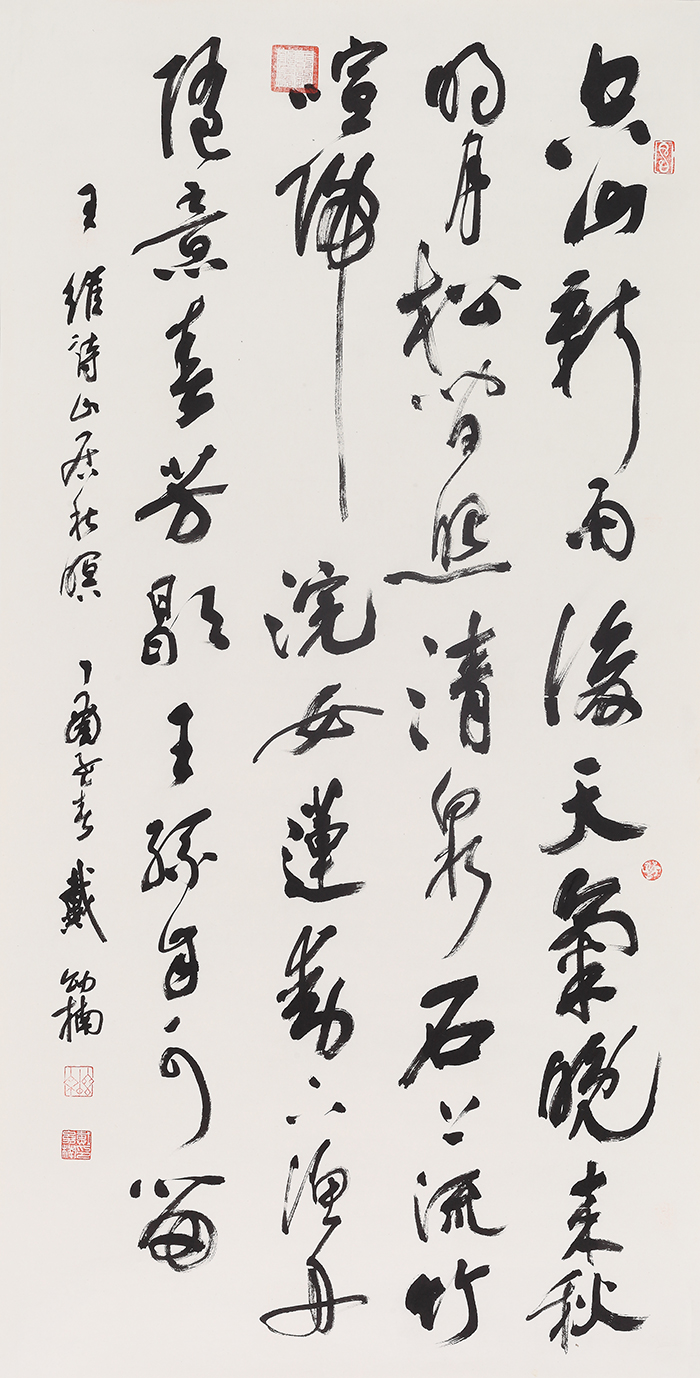 空山新雨後天氣晚来秋
明月松間照清泉石上流竹
喧歸浣女蓮動下漁舟
隨意春芳歇王孫自可留
王維詩山居秋暝 丁酉春 戴幼楠